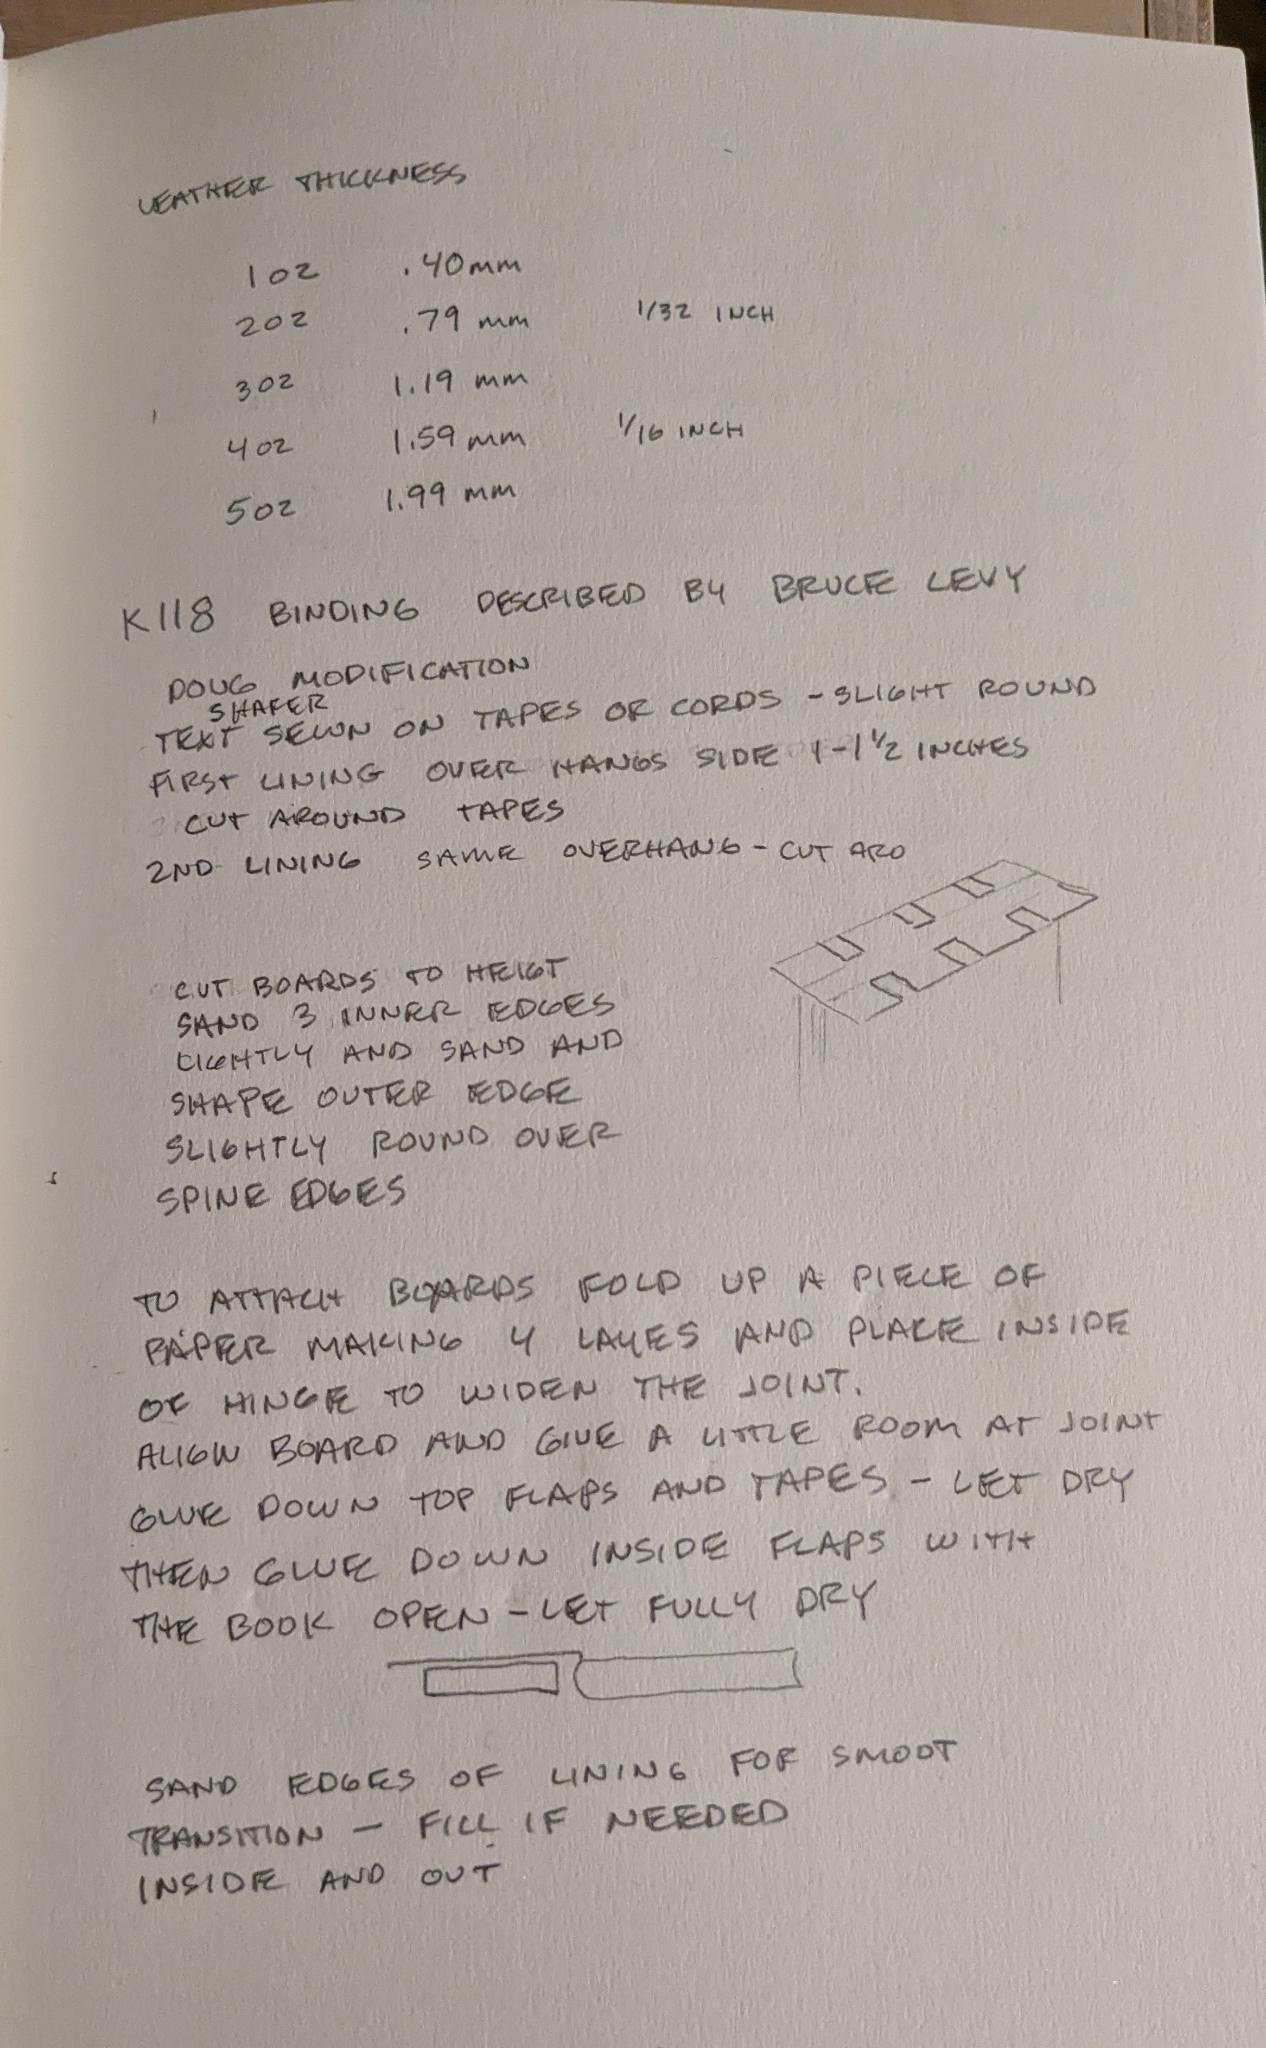 LEATHER THICKNESS
1 OZ .40mm
2 OZ .79 mm 1/32 INCH
3 OZ 1.19 mm
4 OZ 1.59 mm 1/16 INCH
5 OZ 1.99 mm
K118 BINDING DESCRIBED BY BRUCE LEVY
DOUG MODIFICATION
SHAFER
TEXT SEWN ON TAPES OR CORDS - SLIGHT ROUND
FIRST LINING OVER HANGS SIDE 1-1 1/2 INCHES
CUT AROUND TAPES
2ND LINING SAME OVERHANG - CUT ARO
CUT BOARDS TO HEIGT
SAND 3 INNER EDGES
LIGHTLY AND SAND AND
SHAPE OUTER EDGE
SLIGHTLY ROUND OVER
SPINE EDGES
TO ATTACH BOARDS FOLD UP A PIECE OF
PAPER MAKING 4 LAYES AND PLACE INSIDE
OF HINGE TO WIDEN THE JOINT.
ALIGN BOARD AND GIVE A LITTLE ROOM AT JOINT
GLUE DOWN TOP FLAPS AND TAPES - LET DRY
THEN GLUE DOWN INSIDE FLAPS WITH
THE BOOK OPEN - LET FULLY DRY
SAND EDGES OF LINING FOR SMOOT
TRANSITION - FILL IF NEEDED
INSIDE AND OUT